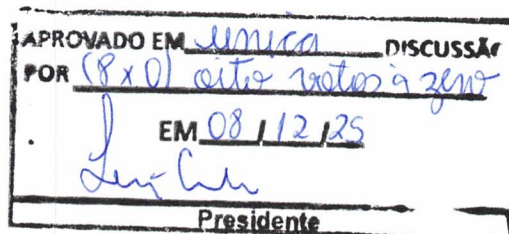 APROVADO EM única DISCUSSÃO
POR (8x0) oito votos à zero
EM 08 / 12 / 25
Presidente